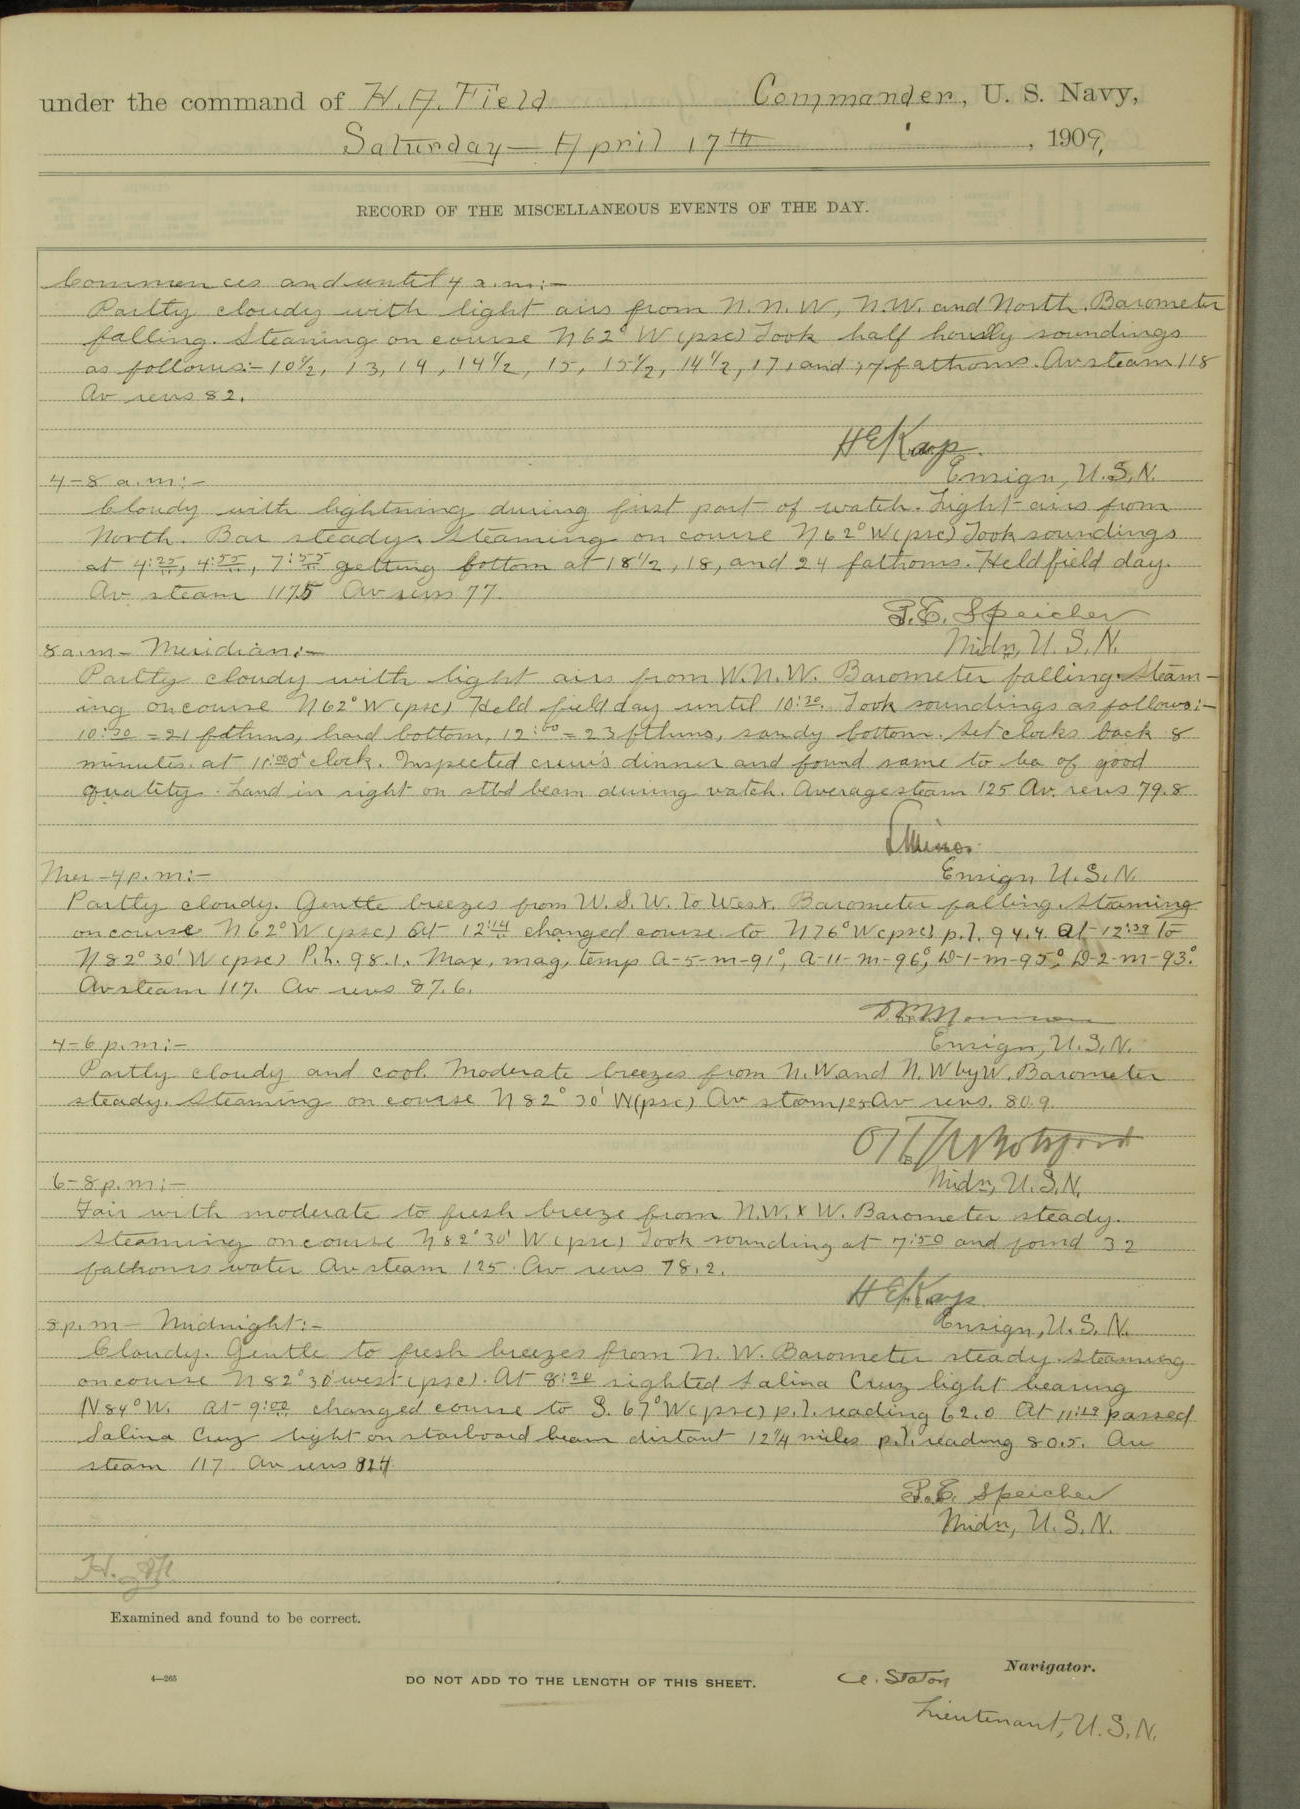 under the command of H. A. Field Commander, U. S. Navy,
Saturday — April 17th, 1909,
RECORD OF THE MISCELLANEOUS EVENTS OF THE DAY.
Commences and until 4 a.m:-
Partly cloudy with light airs from N.N.W, N.W. and North. Barometer
falling. Steaming on course N62°W (psc) Took half hourly soundings
as follows:- 10½, 13, 14, 14½, 15, 15½, 14½, 17, and 17 fathoms. Av steam 118
Av revs 82.
Ensign, U.S.N.
4-8 a.m:-
Cloudy with lightning during first part of watch. Light airs from
North. Bar steady. Steaming on course N62°W (psc) Took soundings
at 4:25, 4:55, 7:55 getting bottom at 18½, 18, and 24 fathoms. Held field day.
Av steam 117.5 Av revs 77.
P.E. Speicher
Midn, U.S.N.
8 a.m - Meridian:-
Partly cloudy with light airs from W.N.W. Barometer falling. Steam-
ing on course N62°W (psc) Held field day until 10:30. Took soundings as follows:-
10:30 = 21 fathms, hard bottom, 12:00 = 23 fthms, sandy bottom. Set clocks back 8
minutes at 11:00 o'clock. Inspected crew's dinner and found same to be of good
quality. Land in sight on stbd beam during watch. Average steam 125 Av. revs 79.8
Ensign U.S.N.
Mer - 4 p.m:-
Partly cloudy. Gentle breezes from W.S.W. to West. Barometer falling. Steaming
on course N62°W (psc) At 12:14 changed course to N76°W (psc) p.l. 94.4. At 12:39 to
N82°30'W (psc) P.L. 98.1. Max, mag, temp A-5-m-91°, A-11-m-96°, D-1-m-95°, D-2-m-93°.
Av steam 117. Av revs 87.6.
Ensign, U.S.N.
4-6 p.m:-
Partly cloudy and cool. Moderate breezes from N.W and N.W by W. Barometer
steady. Steaming on course N82°30'W (psc) Av steam 125 Av revs. 80.9.
Midn, U.S.N.
6-8 p.m:-
Fair with moderate to fresh breeze from N.W. x W. Barometer steady.
Steaming on course N82°30'W (psc) Took sounding at 7:50 and found 32
fathoms water Av steam 125. Av revs 78.2.
Ensign, U.S.N.
8 p.m - Midnight:-
Cloudy. Gentle to fresh breezes from N.W. Barometer steady. Steaming
on course N82°30' west (psc). At 8:20 sighted Salina Cruz light bearing
N84°W. at 9:02 changed course to S. 67°W (psc) p.l. reading 62.0 At 11:29 passed
Salina Cruz light on starboard beam distant 12¼ miles p.l. reading 80.5. Av
steam 117 Av revs 82.4
P.E. Speicher
Midn, U.S.N.
Examined and found to be correct.
4—265
DO NOT ADD TO THE LENGTH OF THIS SHEET.
A. Staton
Navigator.
Lieutenant, U.S.N.